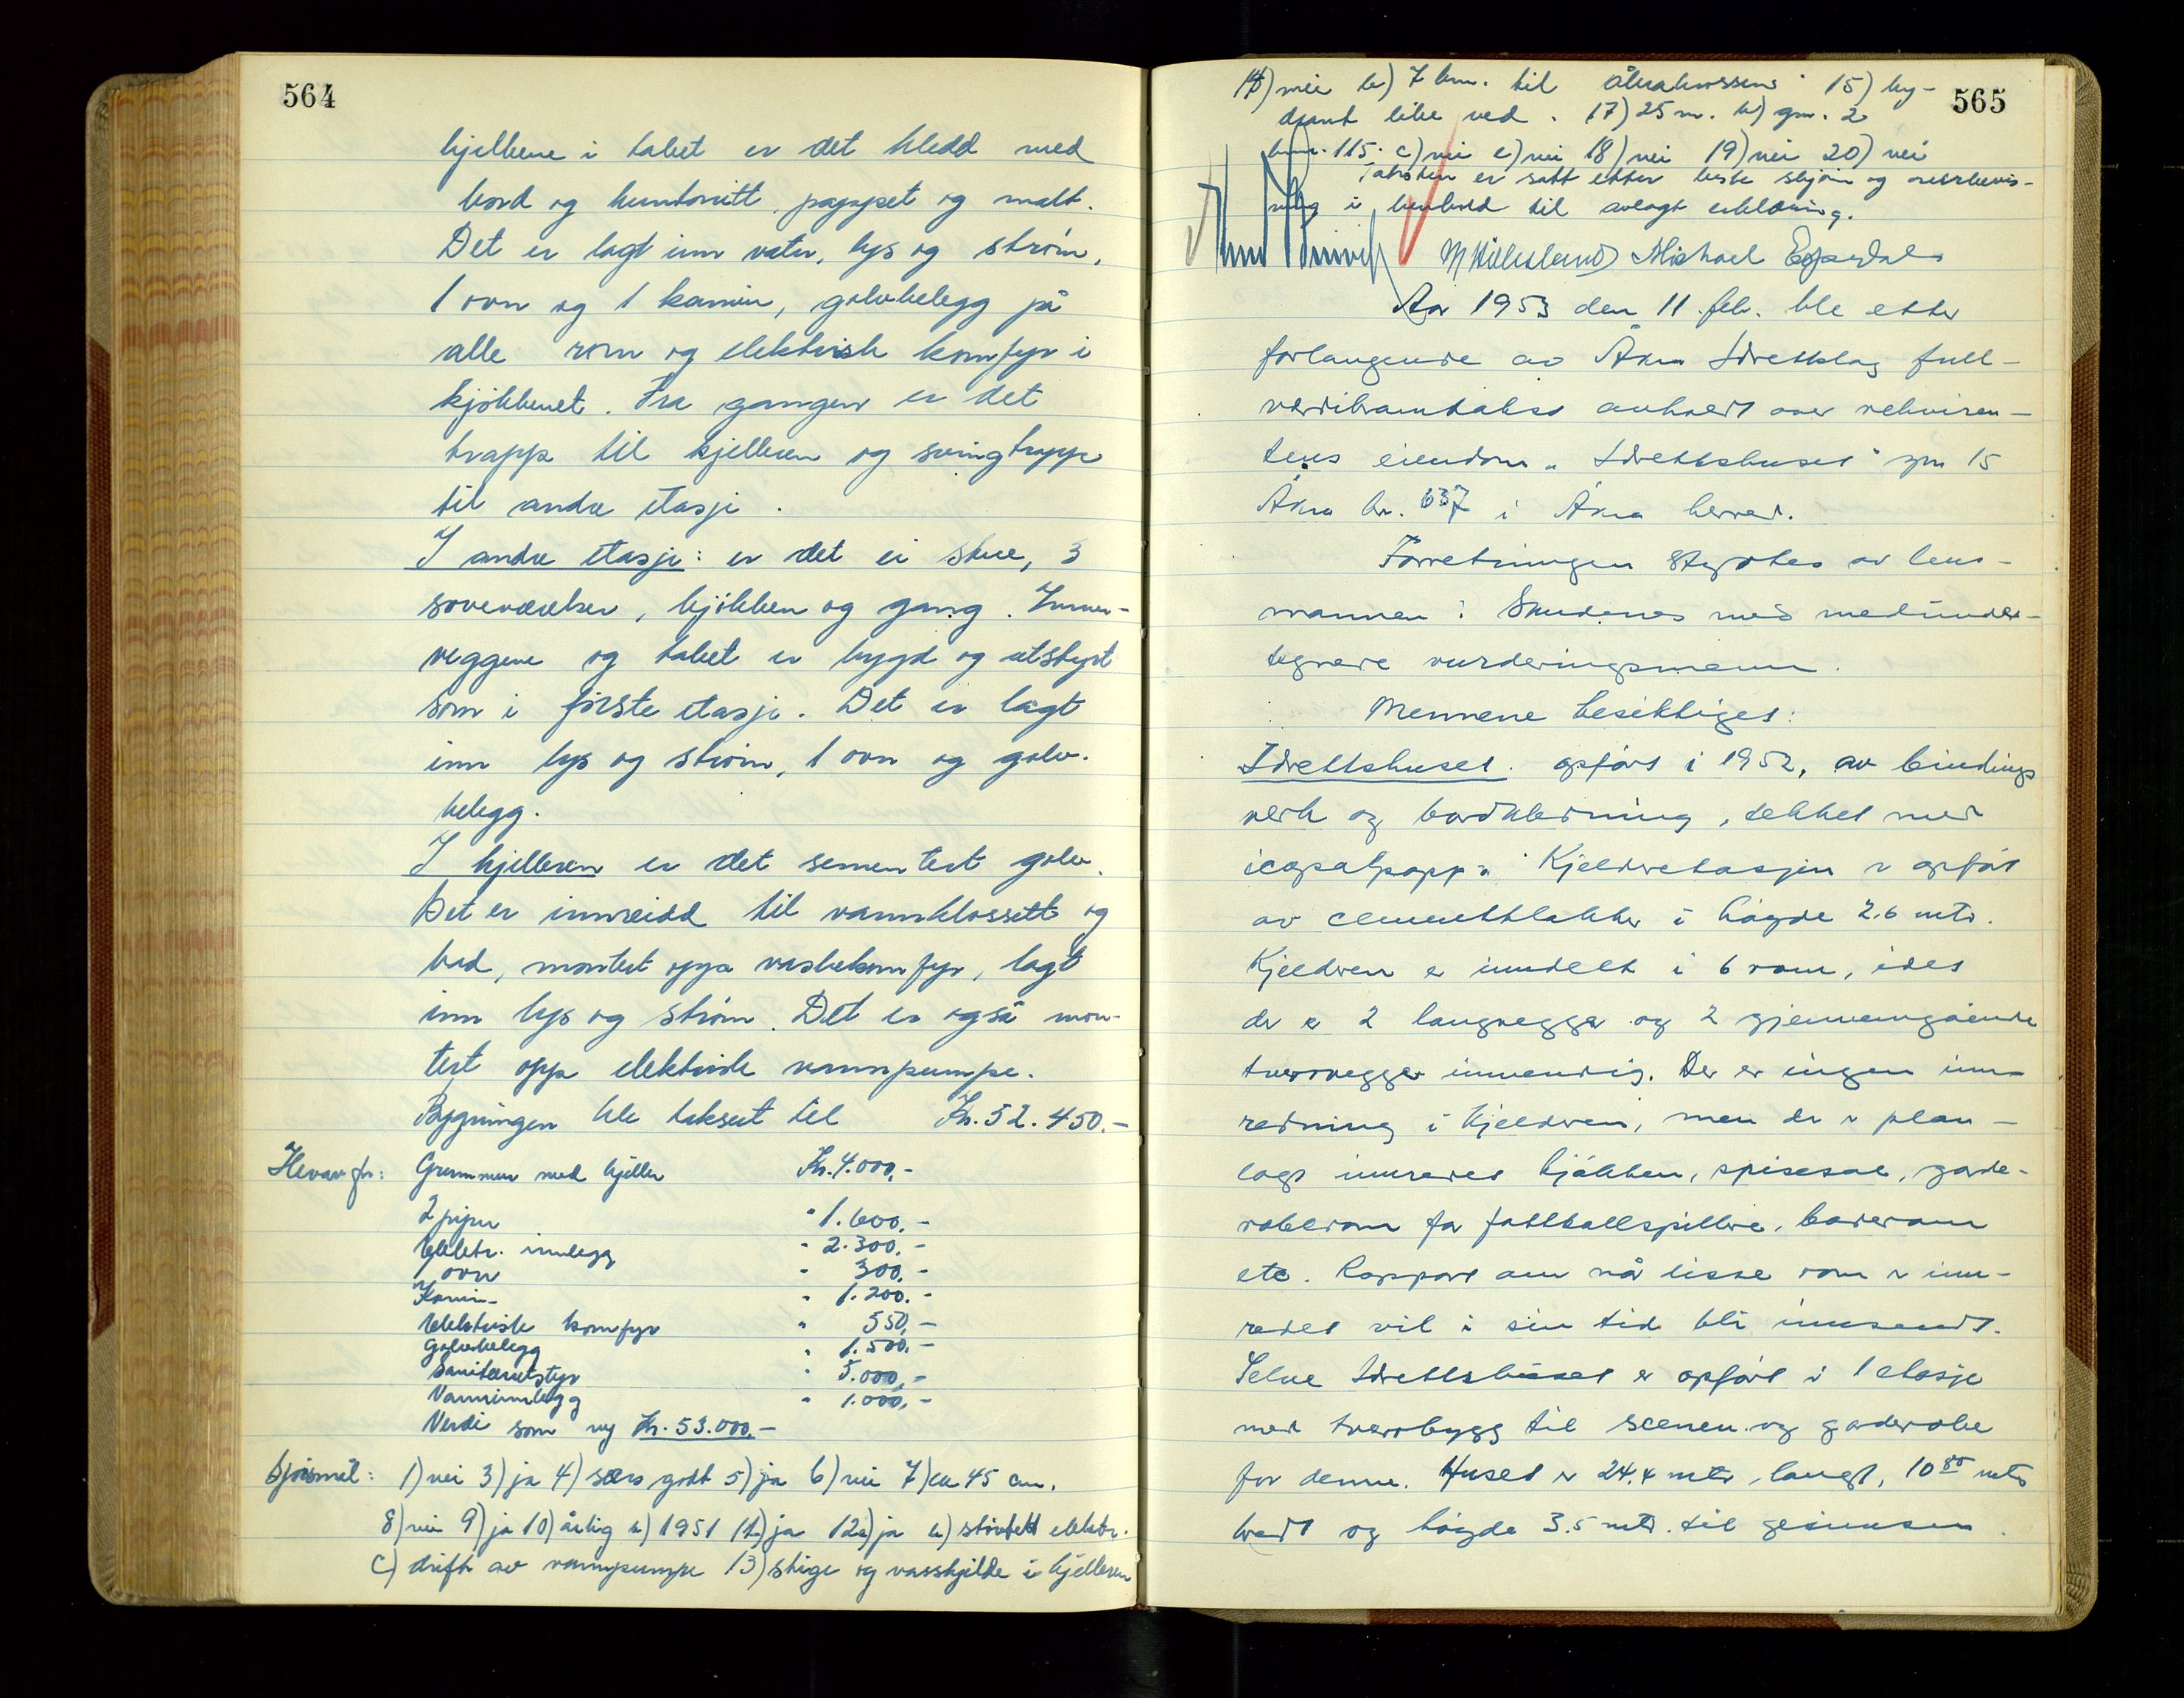 564
bjelkene i taket er det kledd med
bord og huntonitt, pappet og malt.
Det er lagt inn vatn, lys og strøm,
1 ovn og 1 kamin, golvbelegg på
alle rom og elektrisk komfyr i
kjøkkenet. Fra gangen er det
trapp til kjelleren og svingtrapp
til andre etasje.
I andre etasje: er det ei stue, 3
soveværelser, kjøkken og gang. Inner-
veggene og taket er bygd og utstyrt
som i første etasje. Det er lagt
inn lys og strøm, 1 ovn og golv-
belegg.
I kjelleren er det sementert golv.
Det er innreidd til vannklossett og
bad, montert opp vaskekomfyr, lagt
inn lys og strøm. Det er også mon-
tert opp elektrisk vannpumpe.
Bygningen ble taksert til Kr. 52.450.-
Herav for: Grunnmur med kjeller Kr. 4.000,-
2 piper " 1.600,-
Elektr. innlegg " 2.300,-
1 ovn " 300,-
Kamin " 1.200.-
Elektrisk komfyr " 550,-
Golvbelegg " 1.500,-
Sanitærutstyr " 5.000,-
Vanninnlegg " 1.000,-
Verdi som ny Kr. 53.000,-
Spörsmål: 1) nei 3) ja 4) særs godt 5) ja 6) nei 7) ca 45 cm.
8) nei 9) ja 10) årlig b) 1951 11) ja 12a) ja b) støvtett elektr.
c) drift av vannpumpe 13) stige og vasskjelde i kjelleren
565
14) nei b) 7 km. til Åkrakrossens 15) hy-
drant like ved. 17) 25 m. b) gnr. 2
bnr. 115. c) nei e) nei 18) nei 19) nei 20) nei
Taksten er satt etter beste skjøn og overbevis-
ning i henhold til avlagt erklæring.
M Hillesland Michael Espedal
Aar 1953 den 11. feb. ble etter
forlangende av Åkra Idrettslag full-
verdibranntakst avholdt over rekviren-
tens eiendom „Idrettshuset" gnr 15
Åkra br. 637 i Åkra herred.
Forretningen styrtes av lens-
mannen i Skudenes med medunder-
tegnede vurderingsmenn.
Mennene besiktiges:
Idrettshuset. opført i 1952, av bindings
verk og bordkledning, tekket med
icopalpapp. Kjelderetasjen er opført
av cementblokker i høgde 2.6 mtr.
Kjelderen er inndelt i 6 rom, idet
der er 2 langvegger og 2 gjennemgående
tverrvegger innvendig. Der er ingen inn-
redning i kjelderen, men der er plan-
lagt innredet kjøkken, spisesal, garde-
roberom for fotballspillere, baderom
etc. Rapport om når disse rom er inn-
redet vil i sin tid bli innsendt.
Selve Idrettshuset er opført i 1 etasje
med tverrbygg til scenen og garderobe
for denne. Huset er 24.4 mtr langt, 10 80 mtr
bredt og høgde 3.5 mtr. til gesimsen.